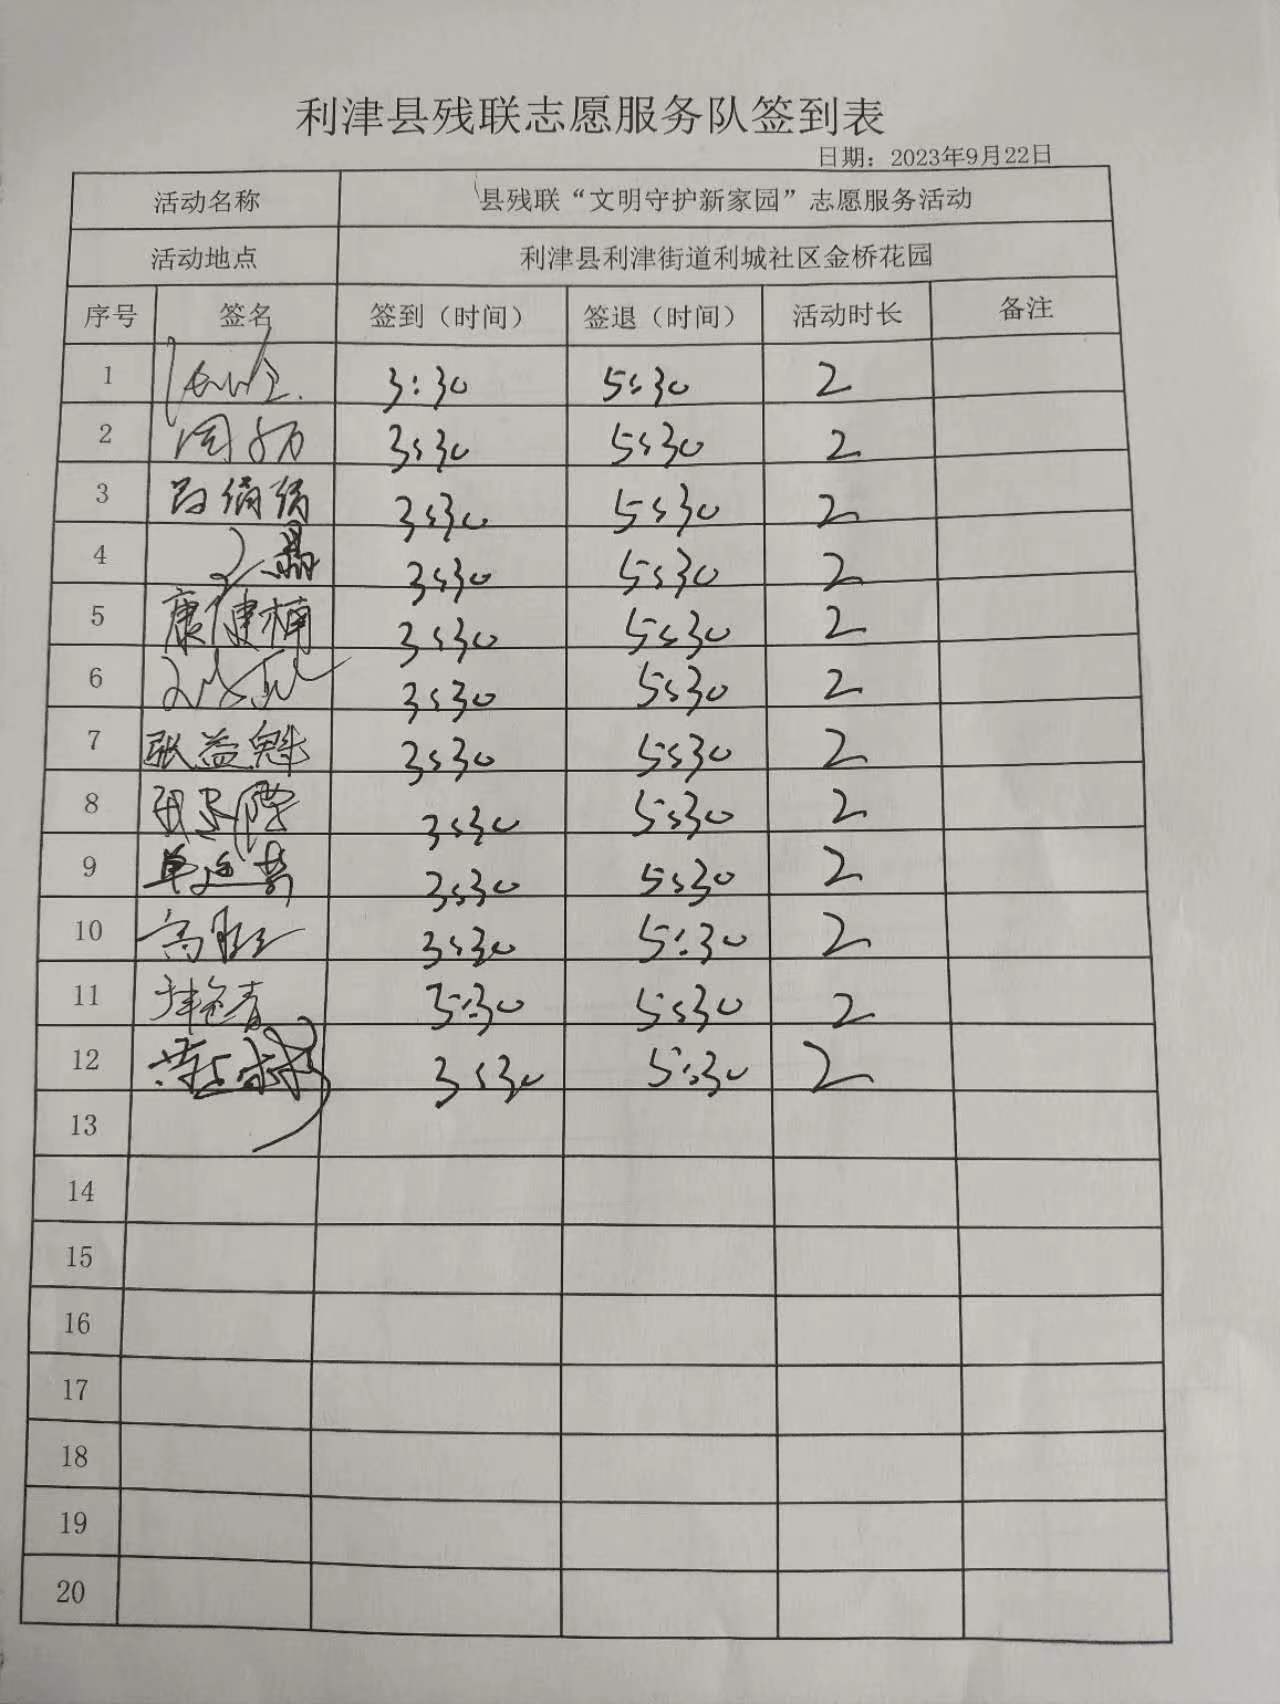 利津县残联志愿服务队签到表
日期：2023年9月22日
活动名称 县残联“文明守护新家园”志愿服务活动
活动地点 利津县利津街道利城社区金桥花园
序号 签名 签到（时间） 签退（时间） 活动时长 备注
1 3:30 5:30 2
2 3:30 5:30 2
3 娟娟 3:30 5:30 2
4 3:30 5:30 2
5 康健楠 3:30 5:30 2
6 3:30 5:30 2
7 张益魁 3:30 5:30 2
8 3:30 5:30 2
9 3:30 5:30 2
10 3:30 5:30 2
11 5:30 5:30 2
12 3:30 5:30 2
13
14
15
16
17
18
19
20